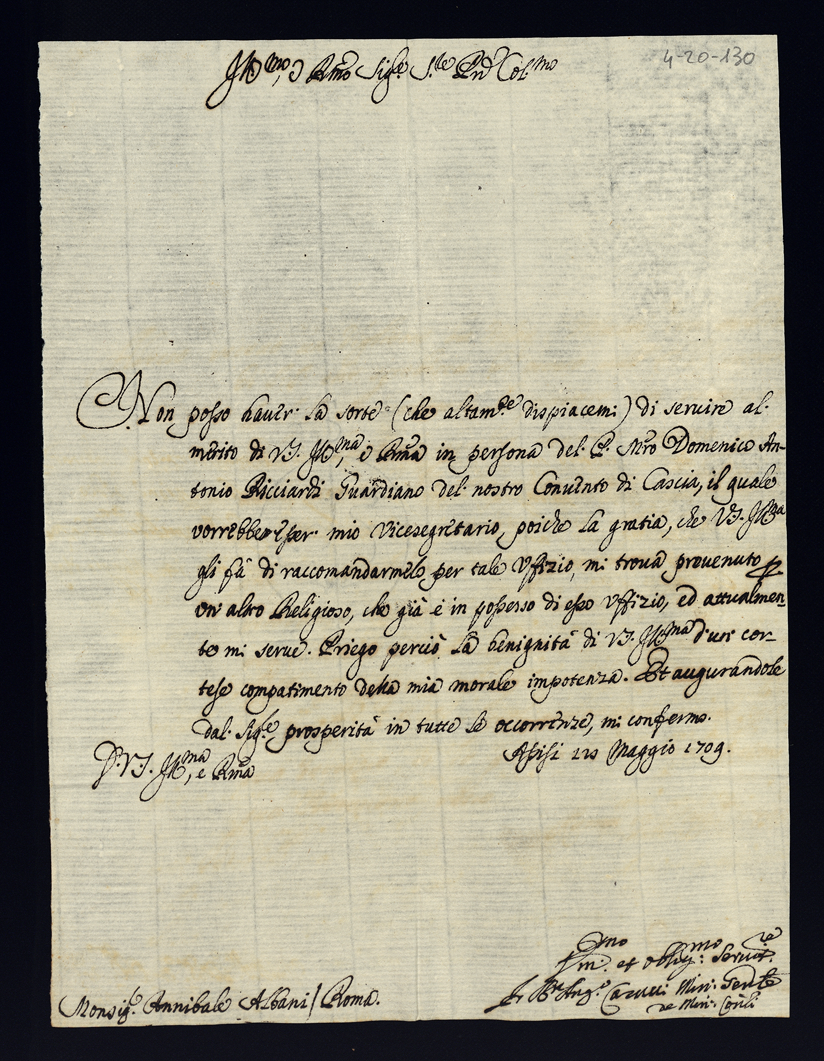 4-20-130
Ill.mo, e R.mo Sig.re S.re P.ne Col.mo
Non posso haver la sorte (che altam.te dispiacemi) di servire al
merito di V.S. Ill.ma, e R.ma in persona del P. M.ro Domenico An-
tonio Ricciardi Guardiano del nostro Convento di Cascia, il quale
vorrebbe esser mio Vicesegretario, poiche la gratia, che V.S. Ill.ma
gli fà di raccomandarmelo per tale Uffizio, mi trova prevenuto p
un altro Religioso, che già è in possesso di esso Uffizio, ed attualmen-
te mi serve. Priego perciò la benignità di V.S. Ill.ma d'un cor-
tese compatimento della mia morale impotenza. Et augurandole
dal Sig.re prosperità in tutte le occorrenze, mi confermo.
D. V.S. Ill.ma, e R.ma
Assisi Maggio 1709.
Monsig.r Annibale Albani / Roma.
et Obblig.mo Servit.re
F. Ang.o Carucci Min. Gen.le
de Min. Con.li